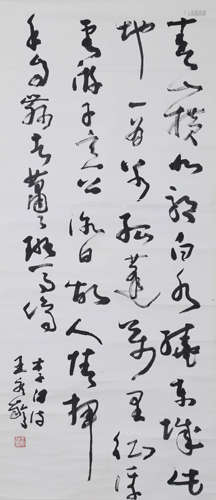 青山橫北郭白水繞東城此
地一為別孤蓬萬里征浮
雲游子意落日故人情揮
手自茲去蕭々班馬鳴
李白詩
王冬齡